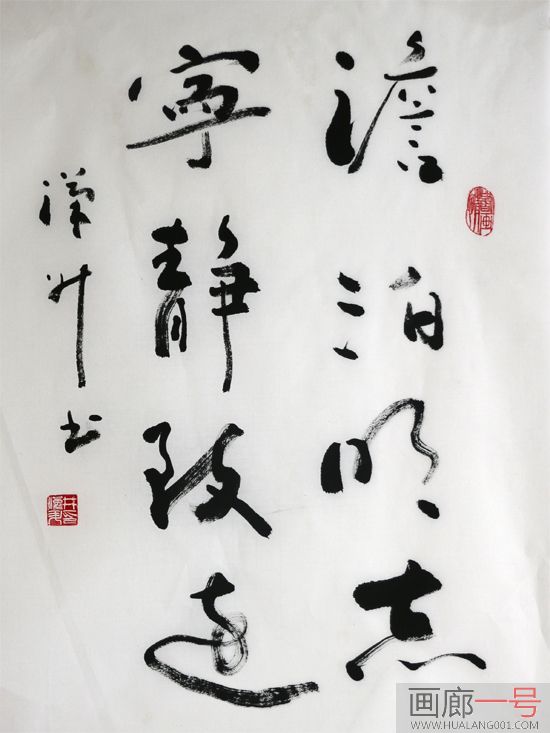 澹泊明志
寧静致遠
漢升书
画廊一号
WWW.HUALANG001.COM